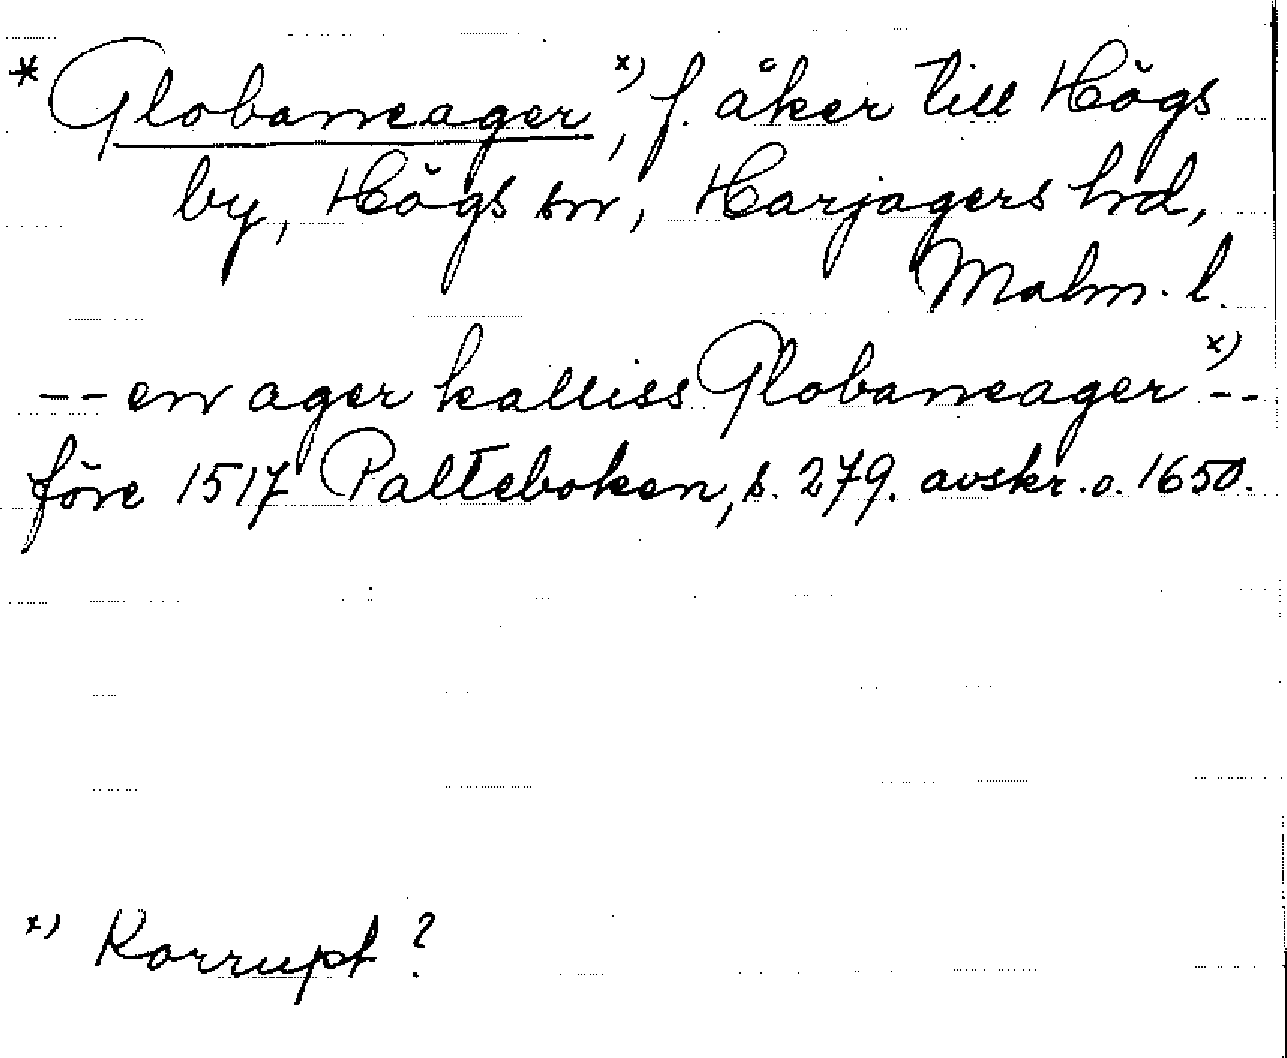 * Globaneager x), f. åker till Högs
by, Högs sn, Harjagers hd,
Malm. l.
-- en ager kalliss Globaneager x) --
före 1517 Palteboken, s. 279. avskr. o. 1650.
x) Korrupt?